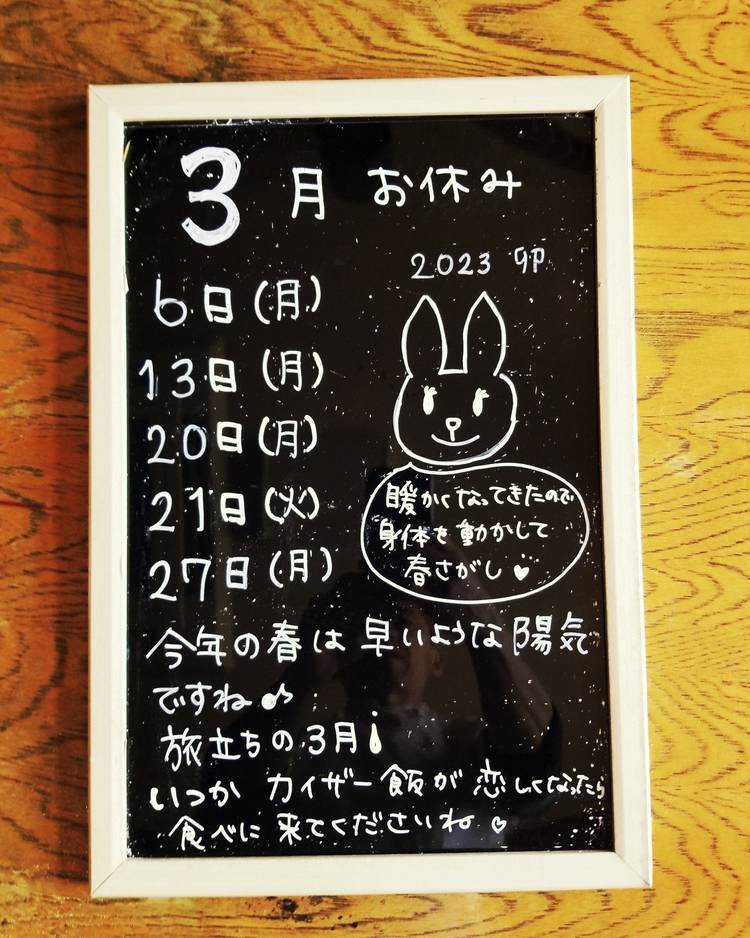 3月 お休み
2023 卯
6日(月)
13日(月)
20日(月)
21日(火)
27日(月)
暖かくなってきたので
身体を動かして
春さがし♥
今年の春は早いような陽気
ですね♪
旅立ちの3月!
いつか カイザー飯が恋しくなったら
食べに来てくださいね♡